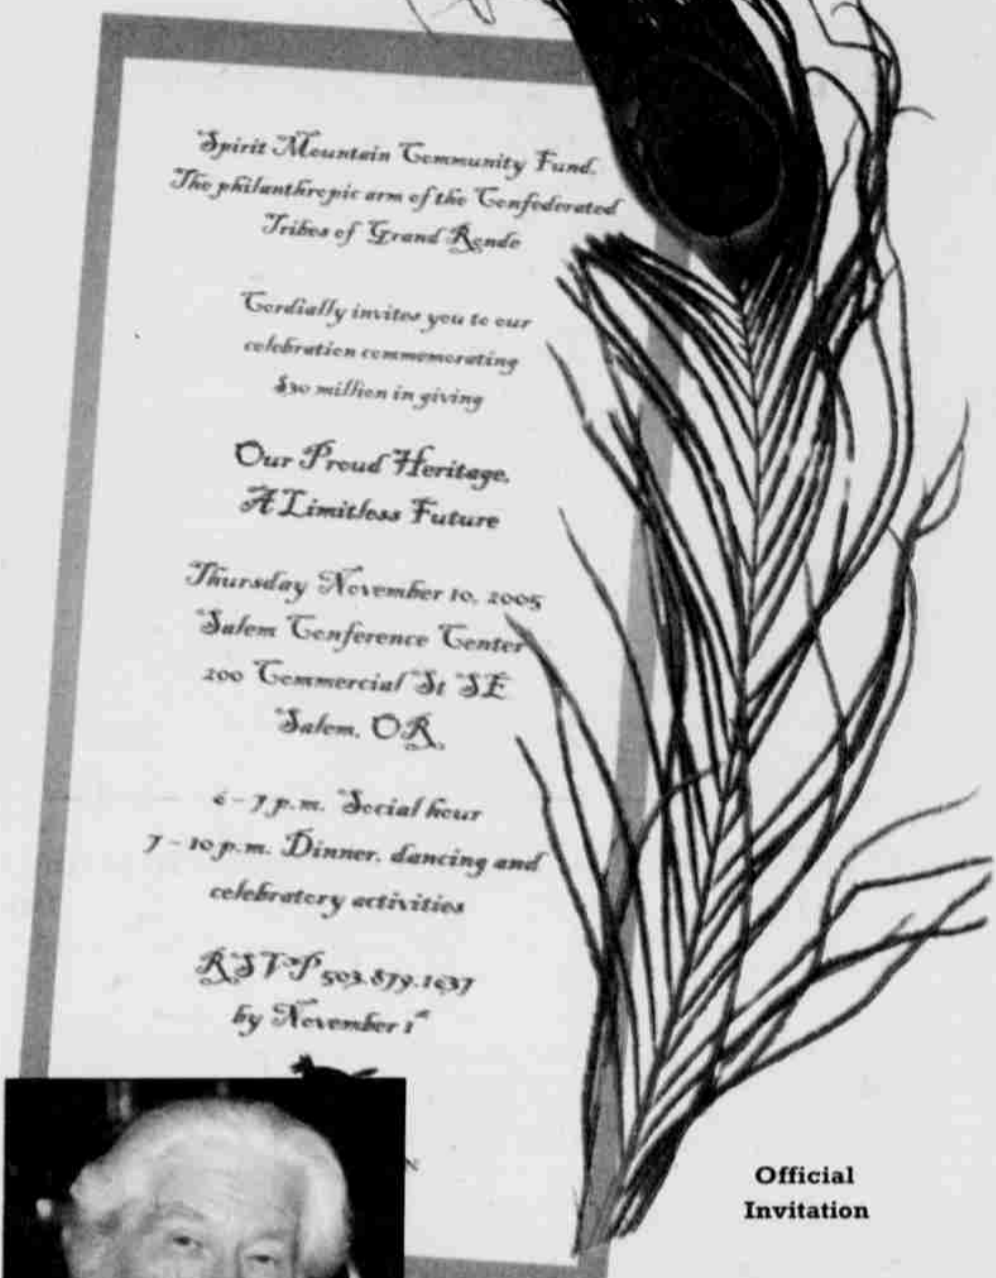 Spirit Mountain Community Fund,
The philanthropic arm of the Confederated
Tribes of Grand Ronde
Cordially invites you to our
celebration commemorating
$30 million in giving
Our Proud Heritage,
A Limitless Future
Thursday November 10, 2005
Salem Conference Center
200 Commercial St SE
Salem, OR
6 - 7 p.m. Social hour
7 - 10 p.m. Dinner, dancing and
celebratory activities
RSVP 503.879.1637
by November 1st
Official
Invitation